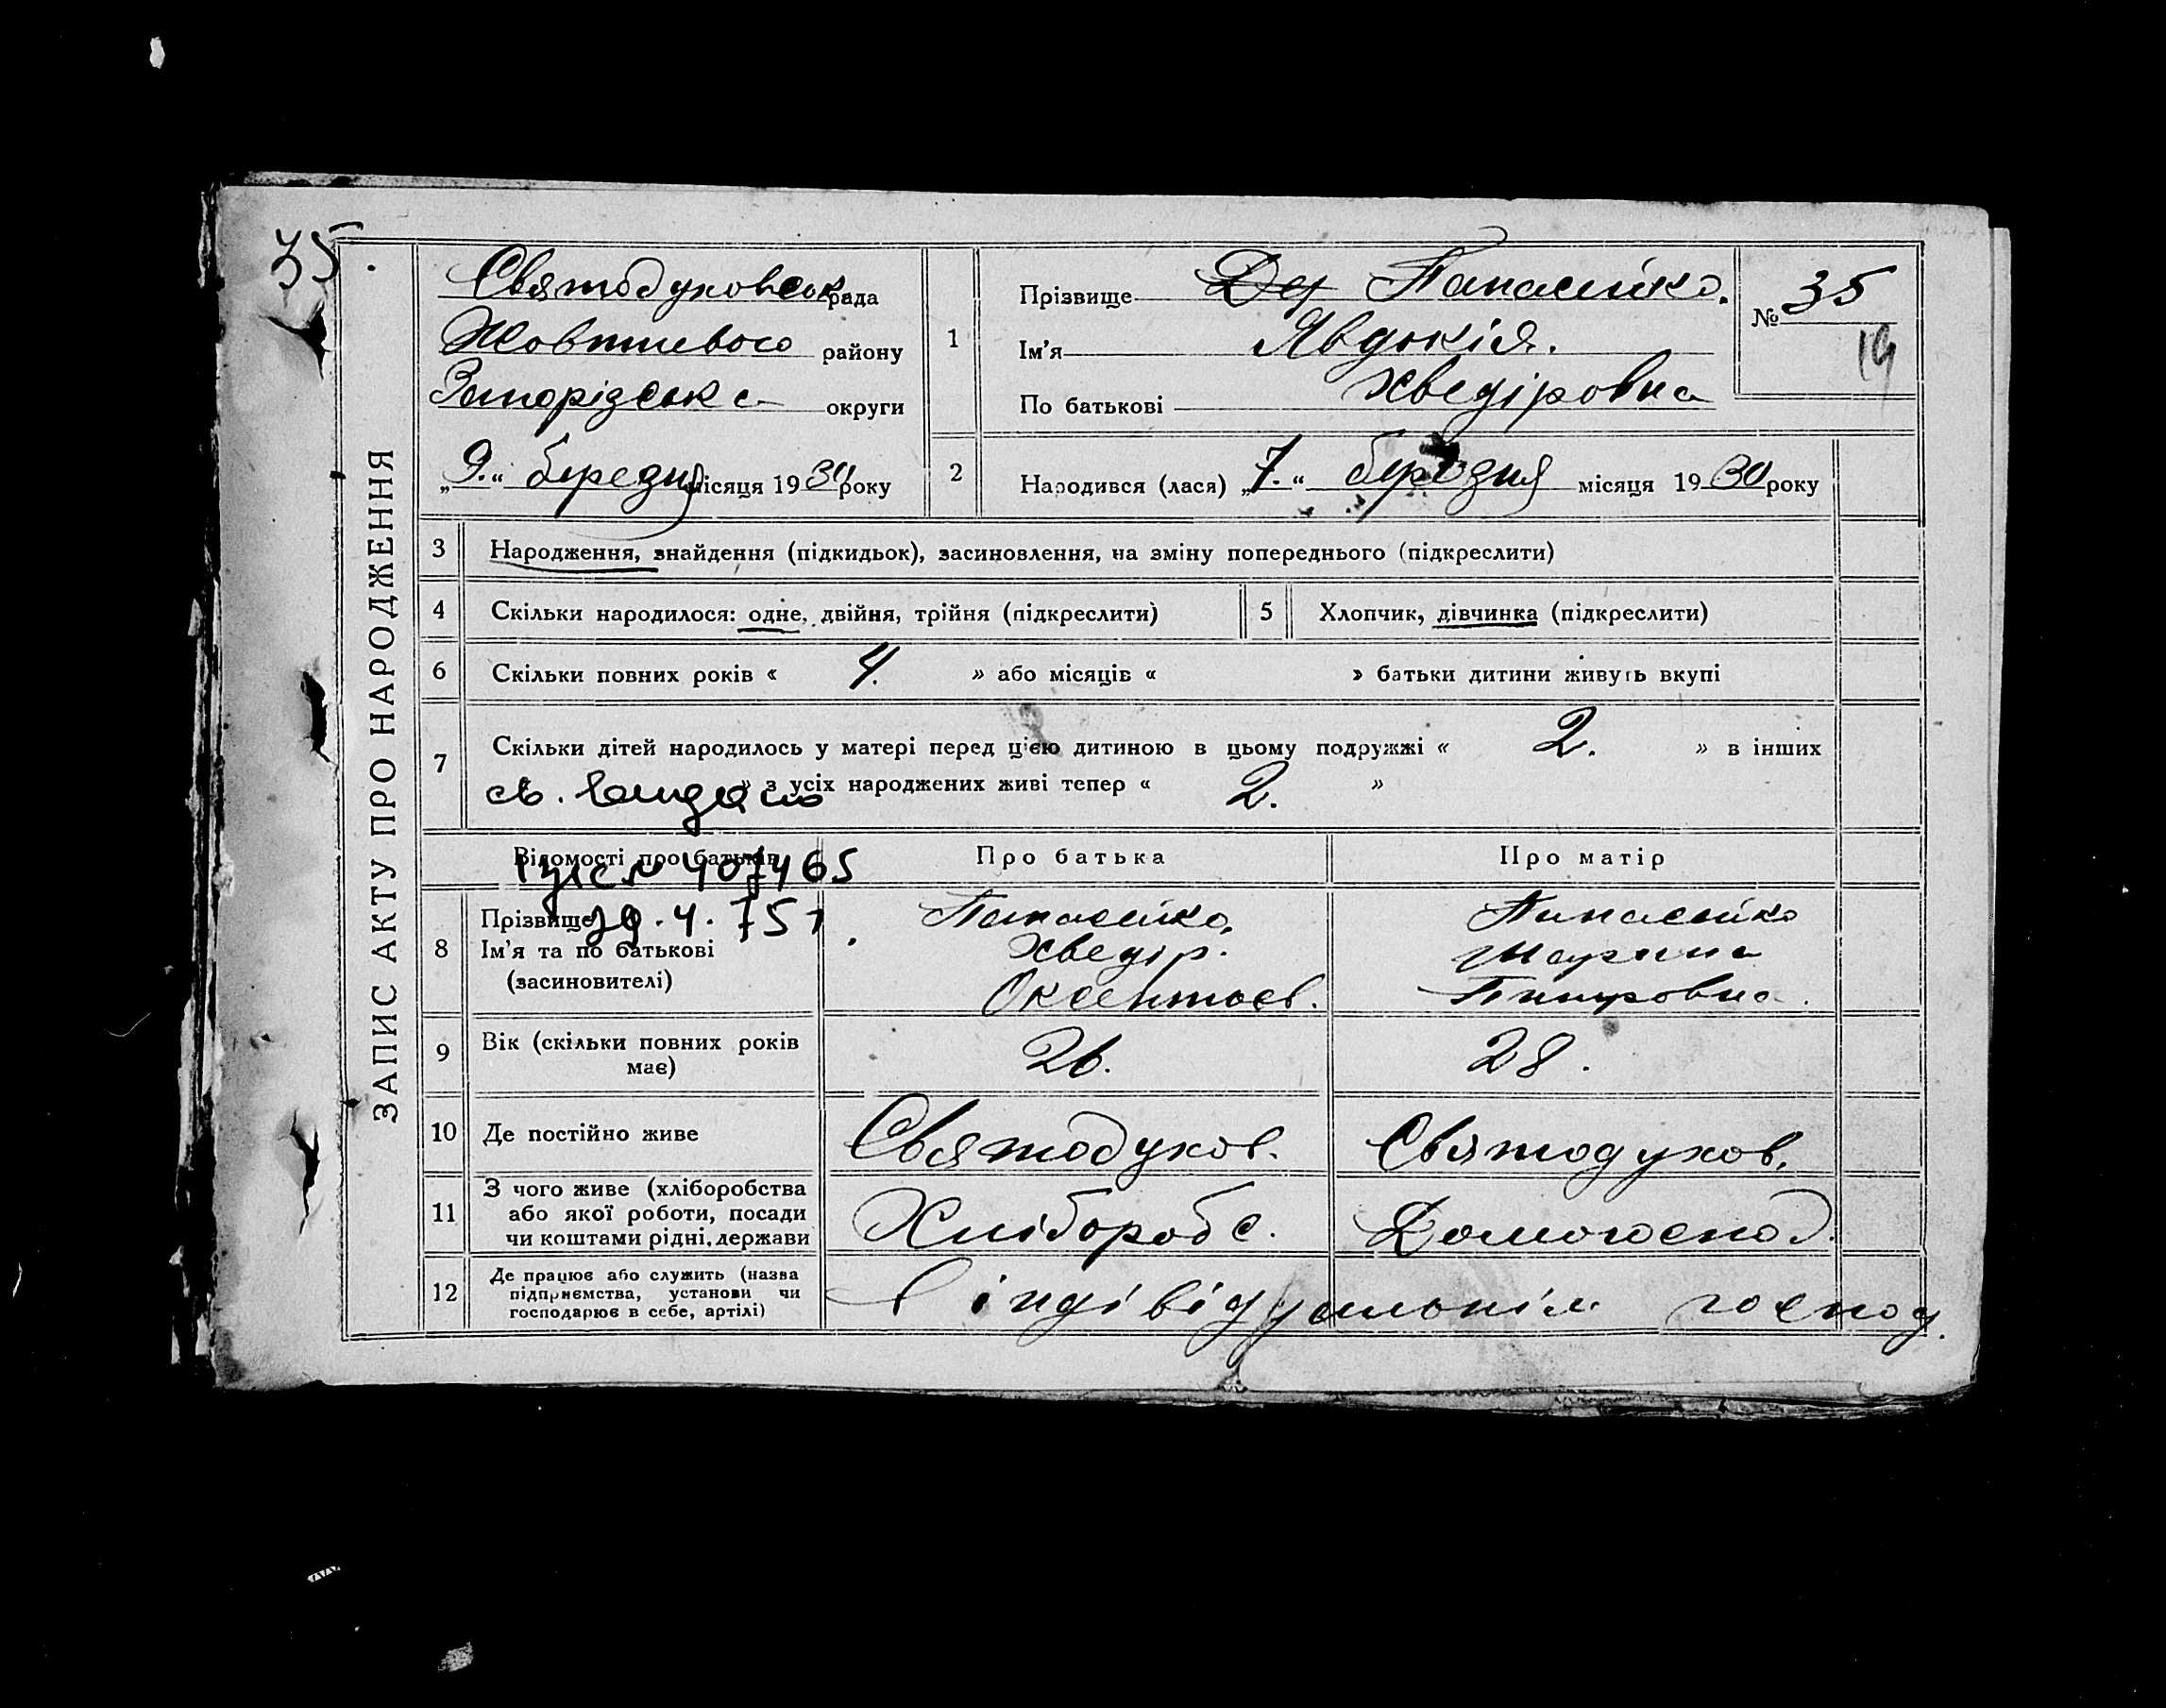 35.
ЗАПИС АКТУ ПРО НАРОДЖЕННЯ
Святодуховськ рада
Жовтневого району
Запорізська округи
„9.“ березня місяця 1930 року
1
Прізвище Панасейко.
Ім'я Явдокія.
По батькові Хведіровна
№ 35
19
2 Народився (лася) „7.“ березня місяця 1930 року
3 Народження, знайдення (підкидьок), засиновлення, на зміну попереднього (підкреслити)
4 Скільки народилося: одне, двійня, трійня (підкреслити)
5 Хлопчик, дівчинка (підкреслити)
6 Скільки повних років « 4. » або місяців « » батьки дитини живуть вкупі
7 Скільки дітей народилось у матері перед цією дитиною в цьому подружжі « 2. » в інших
» з усіх народжених живі тепер « 2. »
св.
№ 407465
29.4.75 г
Відомості про батьків
Про батька
Про матір
8 Прізвище
Ім'я та по батькові
(засиновителі)
Панасейко.
Хведір.
Оксентьев.
Панасейко
Марина
9 Вік (скільки повних років
має)
26.
28.
10 Де постійно живе
Святодухов.
Святодухов.
11 З чого живе (хліборобства
або якої роботи, посади
чи коштами рідні, держави
Хлібороб с.
Домогоспод.
12 Де працює або служить (назва
підприємства, установи чи
господарює в себе, артілі)
В індівідуальнім господ.